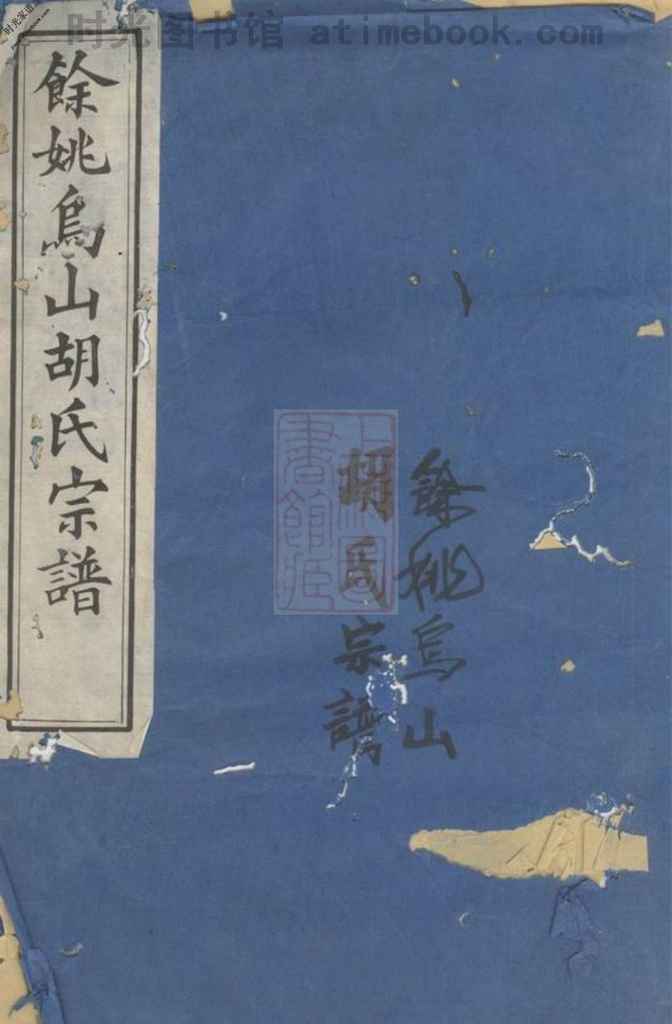 时光图书馆 atimebook.com
餘姚烏山胡氏宗譜
餘姚烏山
胡氏宗譜
上海圖
書館藏